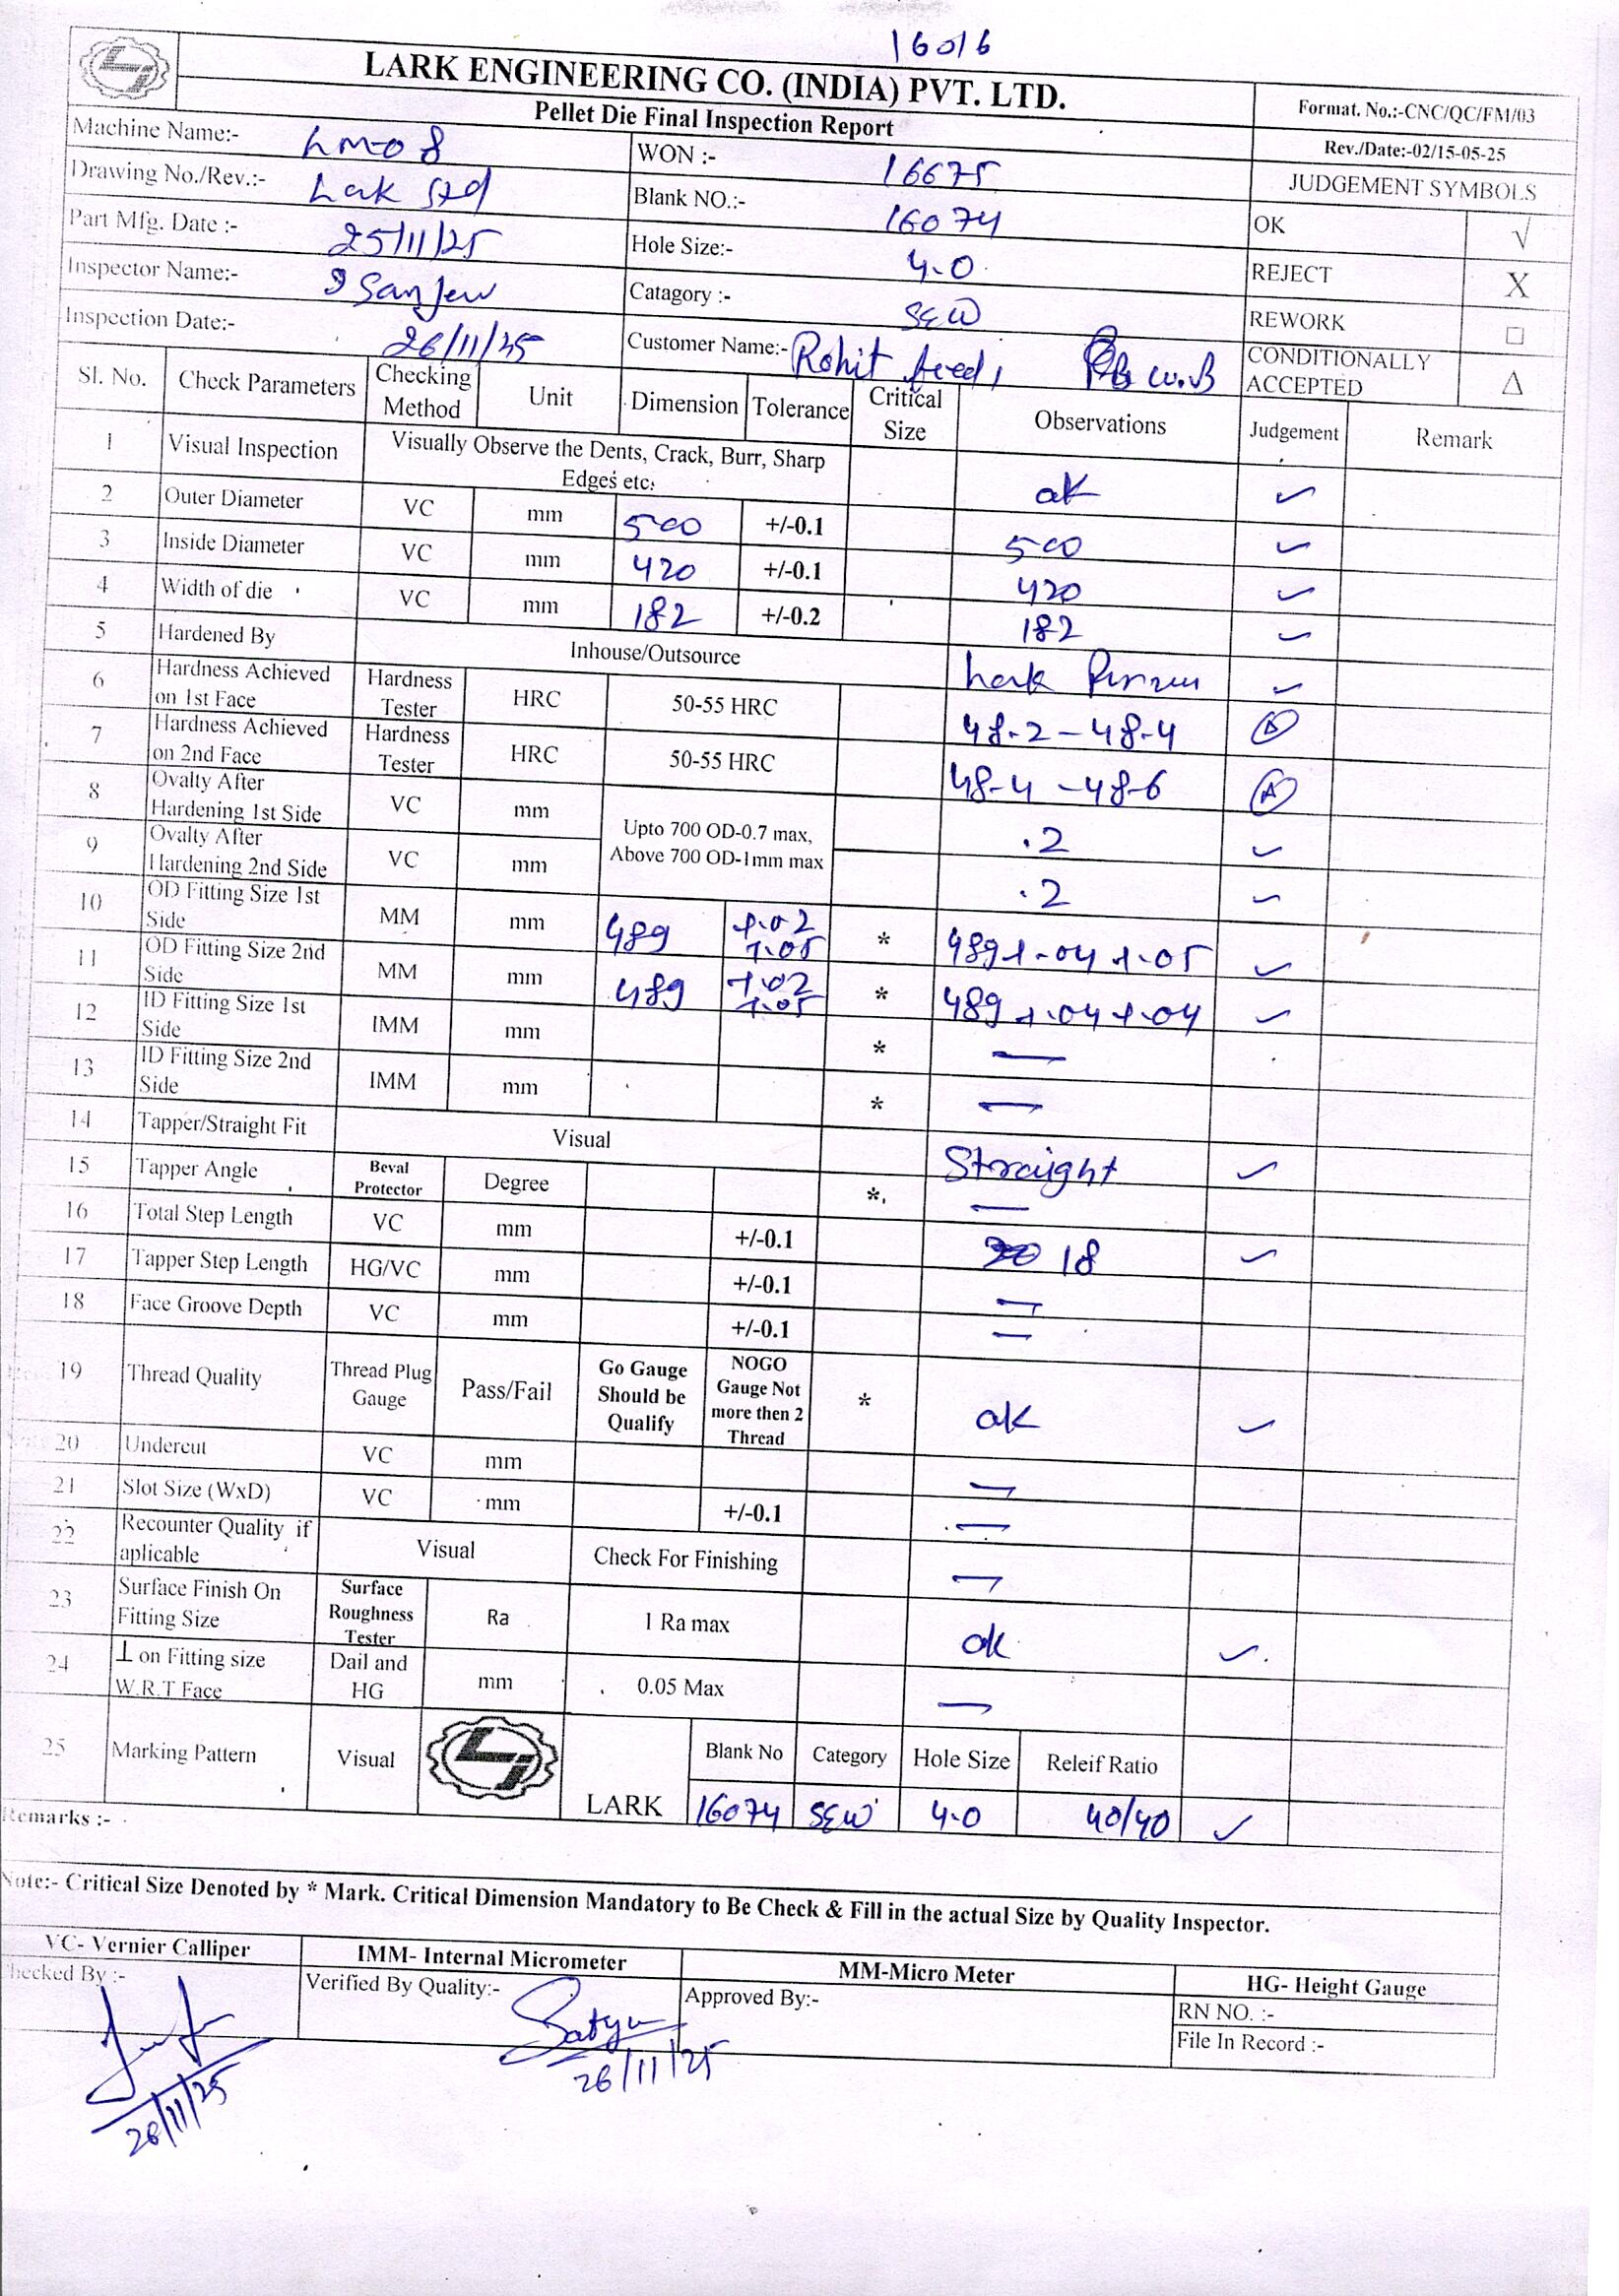 16016
LARK ENGINEERING CO. (INDIA) PVT. LTD.
Pellet Die Final Inspection Report
Format. No.:-CNC/QC/FM/03
Rev./Date:-02/15-05-25
Machine Name:- LM-08 WON :- 16675 JUDGEMENT SYMBOLS
Drawing No./Rev.:- Lark Std Blank NO.:- 16074 OK √
Part Mfg. Date :- 25/11/25 Hole Size:- 4.0 REJECT X
Inspector Name:- Sanjew Catagory :- SEW REWORK □
Inspection Date:- 26/11/25 Customer Name:- Rohit feed, W.B CONDITIONALLY ACCEPTED Δ
Sl. No. Check Parameters Checking Method Unit Dimension Tolerance Critical Size Observations Judgement Remark
1 Visual Inspection Visually Observe the Dents, Crack, Burr, Sharp Edges etc. ok ✓
2 Outer Diameter VC mm 500 +/-0.1 500 ✓
3 Inside Diameter VC mm 420 +/-0.1 420 ✓
4 Width of die VC mm 182 +/-0.2 182 ✓
5 Hardened By Inhouse/Outsource Lark ✓
6 Hardness Achieved on 1st Face Hardness Tester HRC 50-55 HRC 48.2 - 48.4
7 Hardness Achieved on 2nd Face Hardness Tester HRC 50-55 HRC 48.4 - 48.6
8 Ovalty After Hardening 1st Side VC mm Upto 700 OD-0.7 max, Above 700 OD-1mm max .2 ✓
9 Ovalty After Hardening 2nd Side VC mm .2 ✓
10 OD Fitting Size 1st Side MM mm 489 +.02 +.05 * 489 +.04 +.05 ✓
11 OD Fitting Size 2nd Side MM mm 489 +.02 +.05 * 489 +.04 +.04 ✓
12 ID Fitting Size 1st Side IMM mm * —
13 ID Fitting Size 2nd Side IMM mm * —
14 Tapper/Straight Fit Visual Straight ✓
15 Tapper Angle Beval Protector Degree * —
16 Total Step Length VC mm +/-0.1 18 ✓
17 Tapper Step Length HG/VC mm +/-0.1 —
18 Face Groove Depth VC mm +/-0.1 —
19 Thread Quality Thread Plug Gauge Pass/Fail Go Gauge Should be Qualify NOGO Gauge Not more then 2 Thread * ok ✓
20 Undercut VC mm —
21 Slot Size (WxD) VC mm +/-0.1 —
22 Recounter Quality if aplicable Visual Check For Finishing —
23 Surface Finish On Fitting Size Surface Roughness Tester Ra 1 Ra max ok ✓
24 ⊥ on Fitting size W.R.T Face Dail and HG mm 0.05 Max —
25 Marking Pattern Visual LARK Blank No Category Hole Size Releif Ratio
16074 SEW 4.0 40/40 ✓
Remarks :-
Note:- Critical Size Denoted by * Mark. Critical Dimension Mandatory to Be Check & Fill in the actual Size by Quality Inspector.
VC- Vernier Calliper IMM- Internal Micrometer MM-Micro Meter HG- Height Gauge
Checked By :- Verified By Quality:- Satya Approved By:- RN NO. :-
File In Record :-
26/11/25 26/11/25